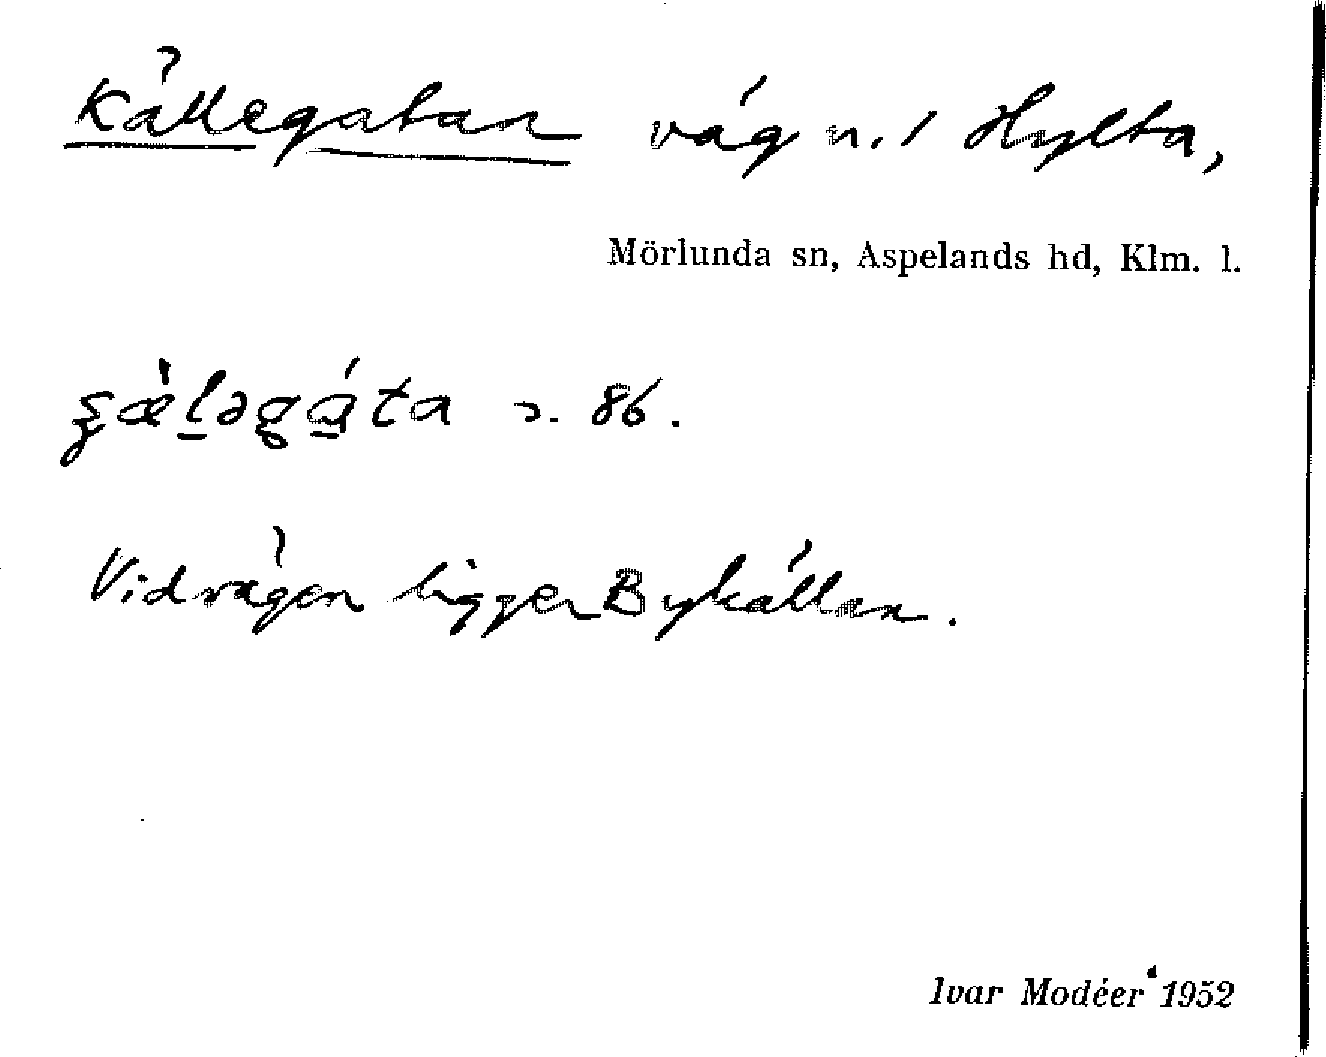 Källegatan väg n. / Hylta,
Mörlunda sn, Aspelands hd, Klm. l.
s. 86.
Vid vägen ligger Bykällan.
Ivar Modéer 1952